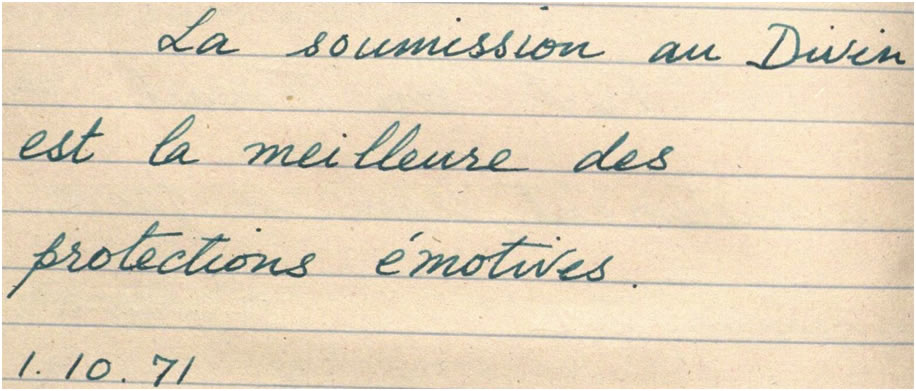 La soumission au Divin
est la meilleure des
protections émotives.
1.10.71